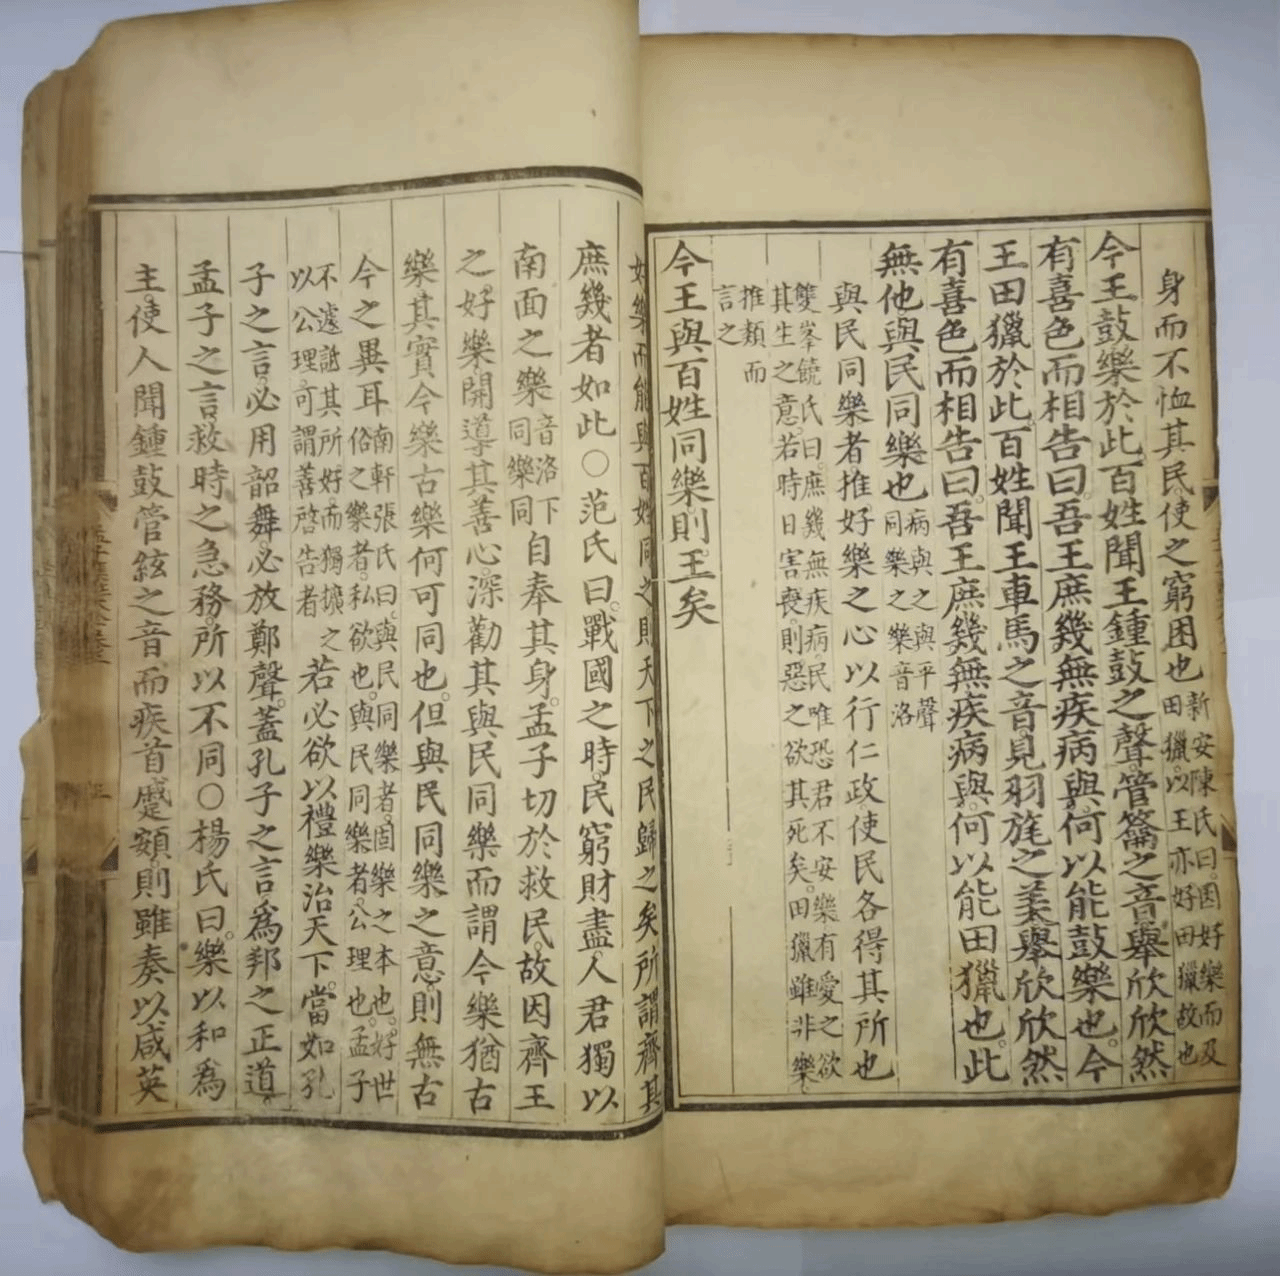 身而不恤其民使之窮困也新安陳氏曰因好樂而及田獵以王亦好田獵故也
今王鼓樂於此百姓聞王鍾鼓之聲管籥之音舉欣欣然
有喜色而相告曰吾王庶幾無疾病與何以能鼓樂也今
王田獵於此百姓聞王車馬之音見羽旄之美舉欣欣然
有喜色而相告曰吾王庶幾無疾病與何以能田獵也此
無他與民同樂也病與之與平聲同樂之樂音洛
與民同樂者推好樂之心以行仁政使民各得其所也
雙峯饒氏曰庶幾無疾病民唯恐君不安樂有愛之欲
其生之意若時日害喪則惡之欲其死矣田獵雖非樂
推類而
言之
今王與百姓同樂則王矣
好樂而能與百姓同之則天下之民歸之矣所謂齊其
庶幾者如此○范氏曰戰國之時民窮財盡人君獨以
南面之樂音洛下同樂同自奉其身孟子切於救民故因齊王
之好樂開導其善心深勸其與民同樂而謂今樂猶古
樂其實今樂古樂何可同也但與民同樂之意則無古
今之異耳南軒張氏曰與民同樂者固樂之本也好世俗之樂者私欲也與民同樂者公理也孟子
不遽詆其所好而獨擴之以公理可謂善啓告者若必欲以禮樂治天下當如孔
子之言必用韶舞必放鄭聲蓋孔子之言爲邦之正道
孟子之言救時之急務所以不同○楊氏曰樂以和爲
主使人聞鍾鼓管絃之音而疾首蹙頞則雖奏以咸英